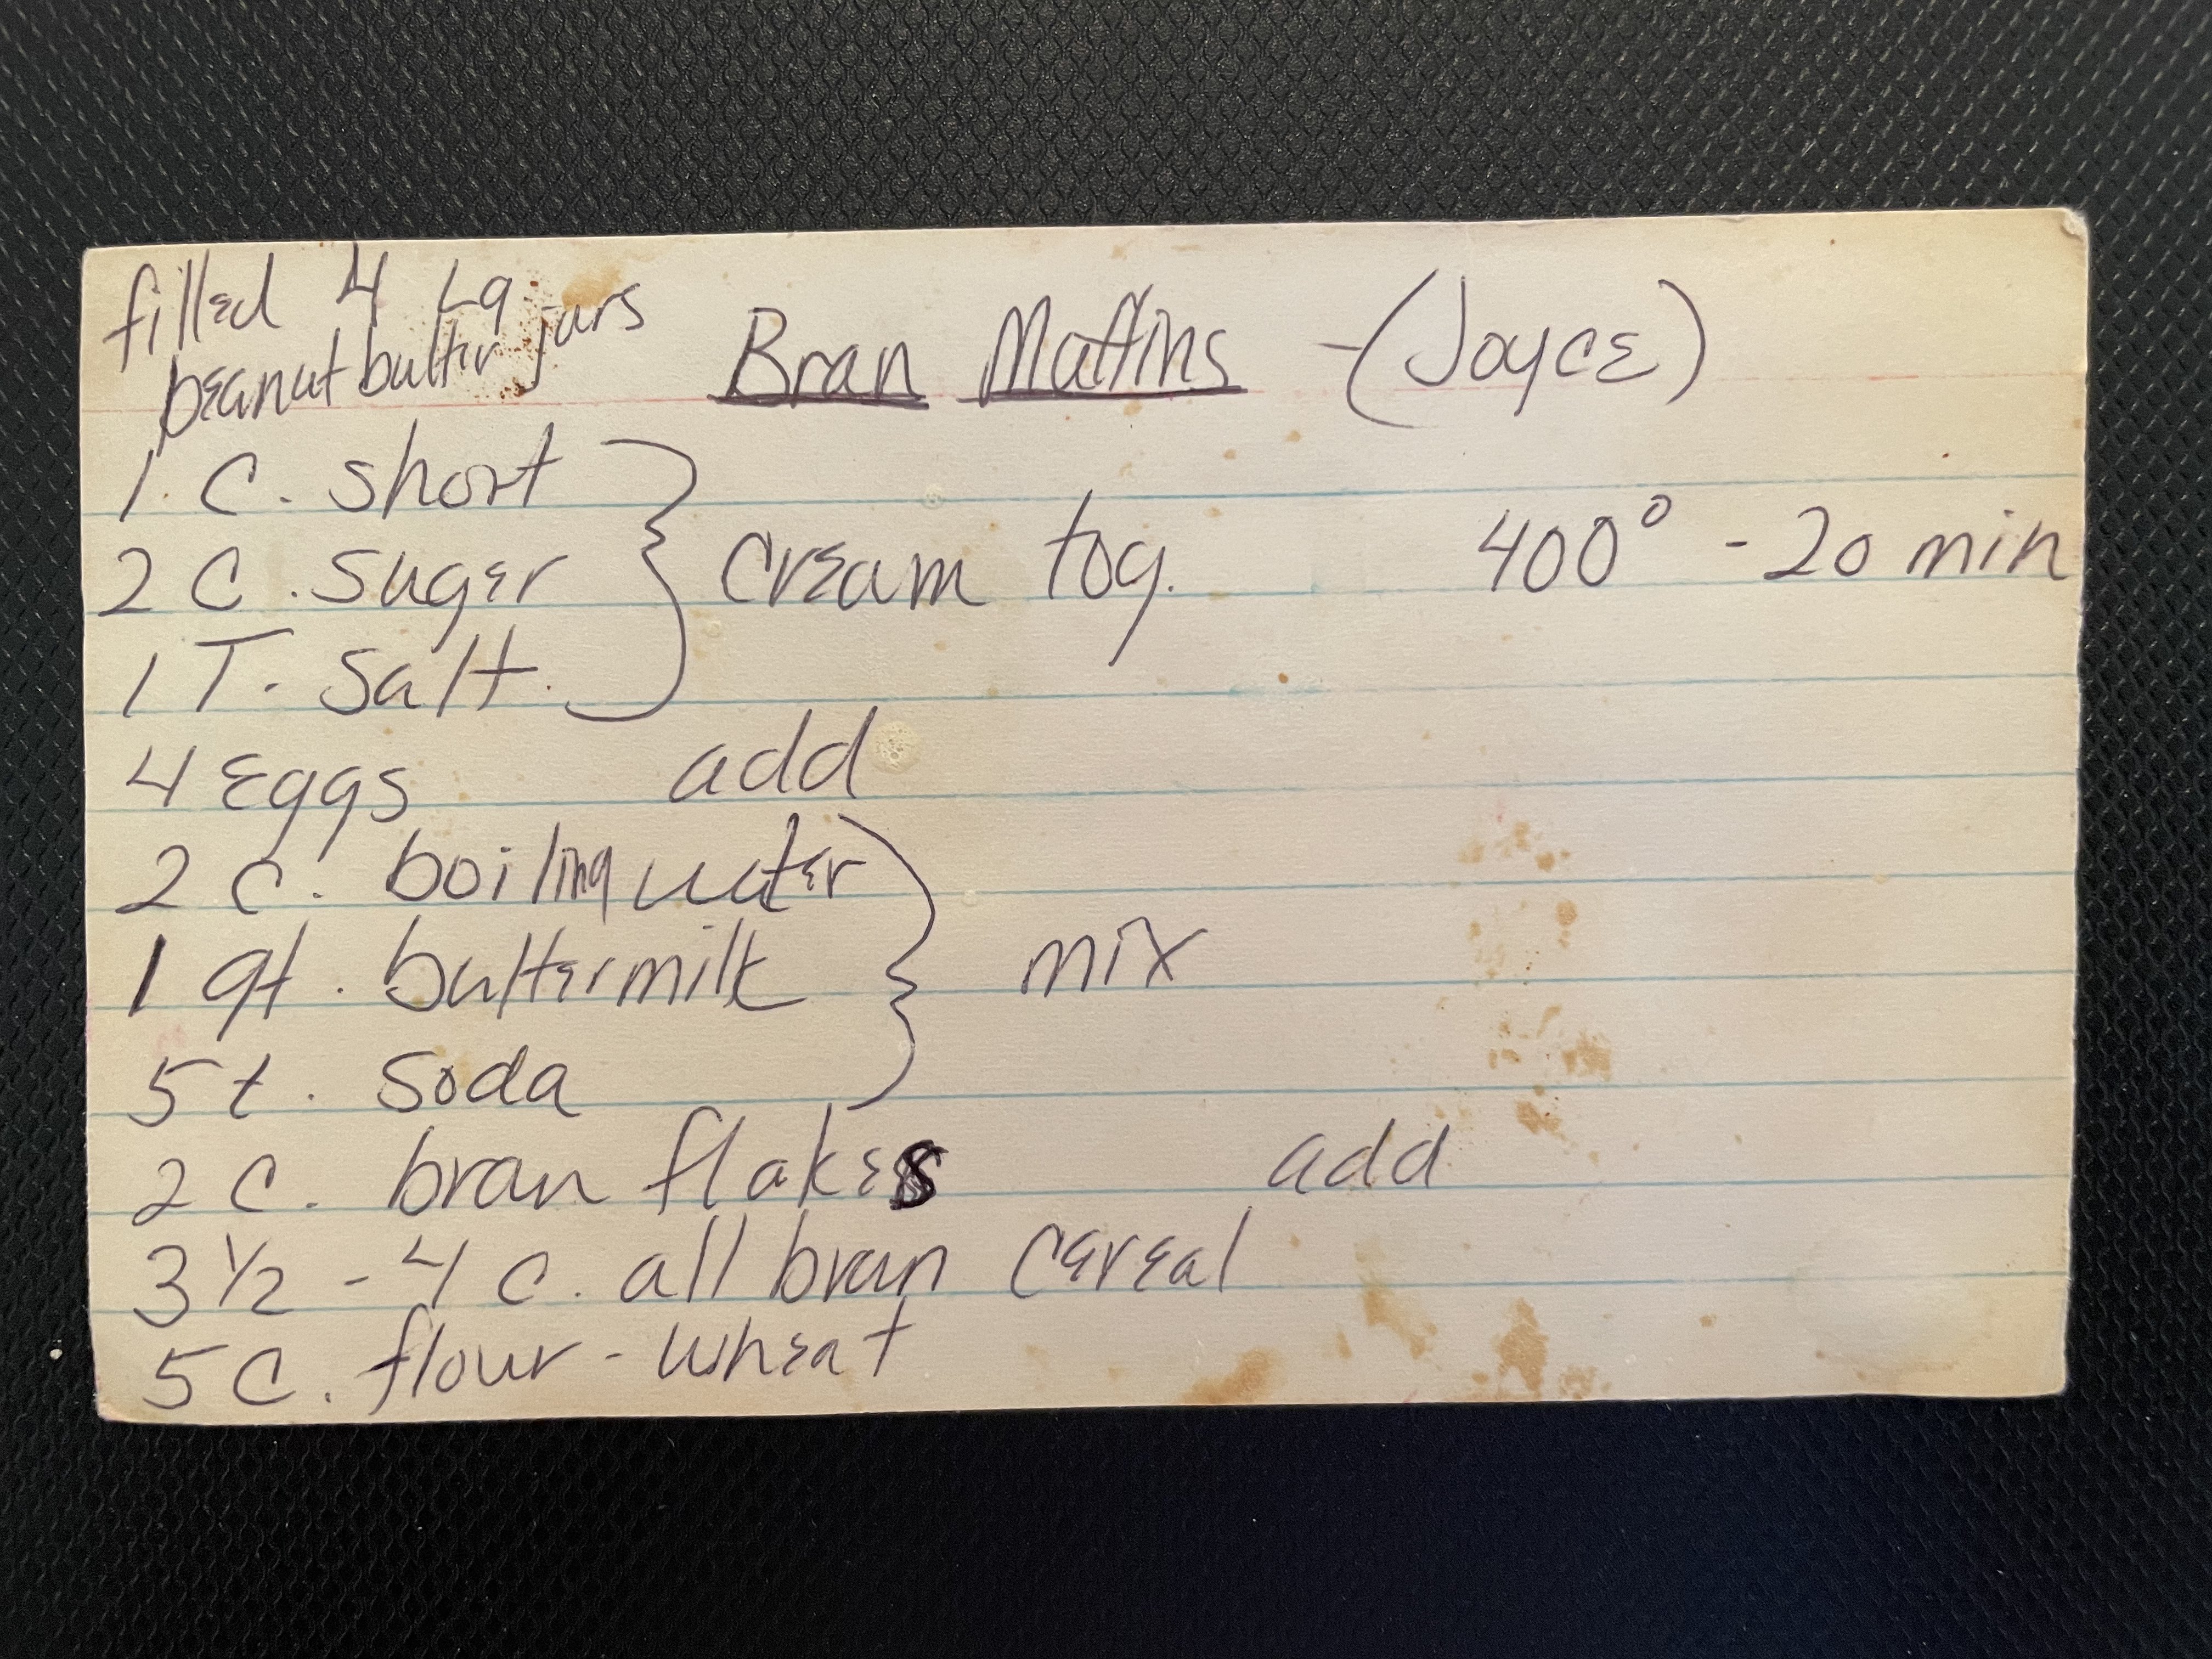 filled 4 Lg
peanut butter jars
Bran Muffins - (Joyce)
1 C. short
2 C. suger
cream tog.
400° - 20 min
1 T. salt
4 eggs add
2 c. boiling water
1 qt. buttermilk
mix
5 t. soda
2 c. bran flakes add
3 1/2 - 4 c. all bran cereal
5 C. flour - wheat